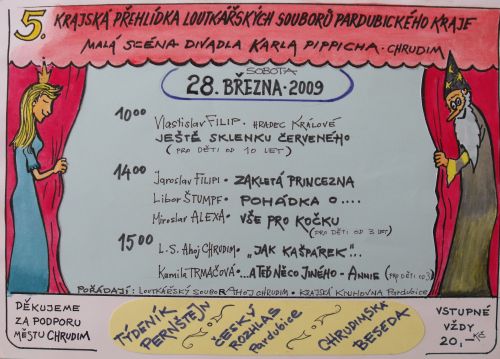 5. KRAJSKÁ PŘEHLÍDKA LOUTKÁŘSKÝCH SOUBORŮ PARDUBICKÉHO KRAJE
MALÁ SCÉNA DIVADLA KARLA PIPPICHA - CHRUDIM
SOBOTA
28. BŘEZNA · 2009
1000
Vlastislav FILIP · HRADEC KRÁLOVÉ
JEŠTĚ SKLENKU ČERVENÉHO
(PRO DĚTI OD 10 LET)
1400
Jaroslav FILIPI · ZAKLETÁ PRINCEZNA
Libor ŠTUMPF · POHÁDKA O....
Miroslav ALEXA · VŠE PRO KOČKU
(PRO DĚTI OD 3 LET)
1500
L.S. Ahoj CHRUDIM · „JAK KAŠPÁREK"...
Kamila TRMAČOVÁ...A TEĎ NĚCO JINÉHO - ANNIE (PRO DĚTI OD 3)
POŘÁDAJÍ: LOUTKÁŘSKÝ SOUBOR AHOJ CHRUDIM · KRAJSKÁ KNIHOVNA Pardubice
DĚKUJEME
ZA PODPORU
MĚSTU CHRUDIM
TÝDENÍK
PERNŠTEJN
ČESKÝ
ROZHLAS
Pardubice
CHRUDIMSKÁ
BESEDA
VSTUPNÉ
VŽDY
20,- Kč